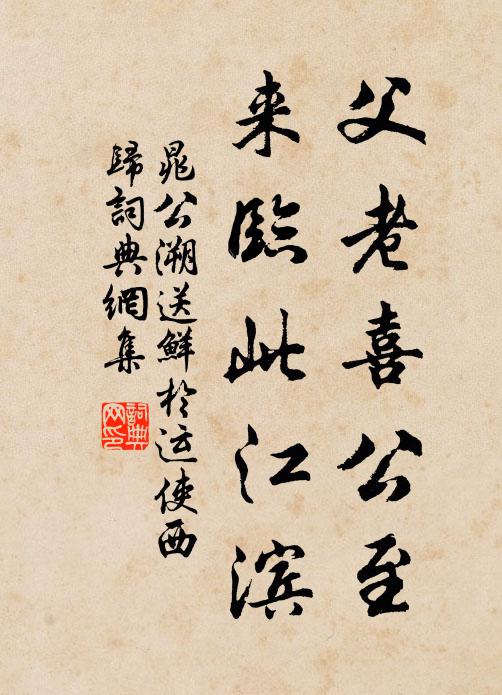 父老喜公至
来臨此江滨
晁公溯送鮮於运使西
歸詞典網集
詞典
网印